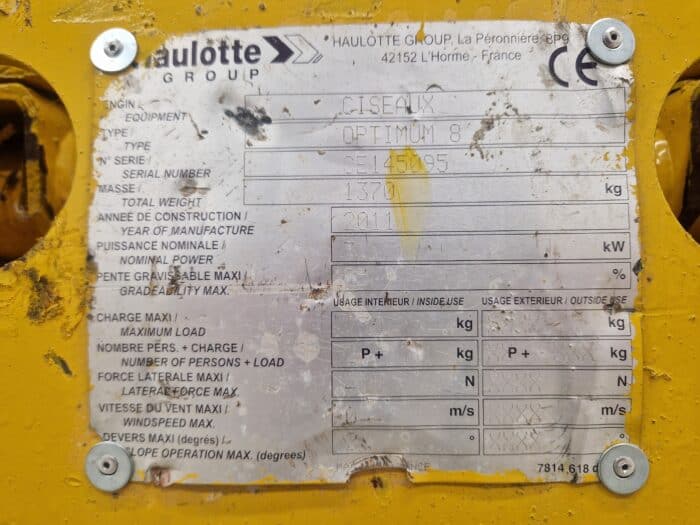 Haulotte
GROUP
HAULOTTE GROUP, La Péronnière, BP9
42152 L'Horme - France
CE
ENGIN / CISEAUX
EQUIPMENT
TYPE / OPTIMUM 8
TYPE
N° SERIE / CE145095
SERIAL NUMBER
MASSE / 1370 kg
TOTAL WEIGHT
ANNÉE DE CONSTRUCTION / 2011
YEAR OF MANUFACTURE
PUISSANCE NOMINALE / kW
NOMINAL POWER
PENTE GRAVISSABLE MAXI / %
GRADEABILITY MAX.
USAGE INTERIEUR / INSIDE USE USAGE EXTERIEUR / OUTSIDE USE
CHARGE MAXI / kg kg
MAXIMUM LOAD
NOMBRE PERS. + CHARGE / P + kg P + kg
NUMBER OF PERSONS + LOAD
FORCE LATERALE MAXI / N N
LATERAL FORCE MAX.
VITESSE DU VENT MAXI / 0 m/s XXX m/s
WINDSPEED MAX.
DEVERS MAXI (degrés) / ° °
SLOPE OPERATION MAX. (degrees)
7814 618